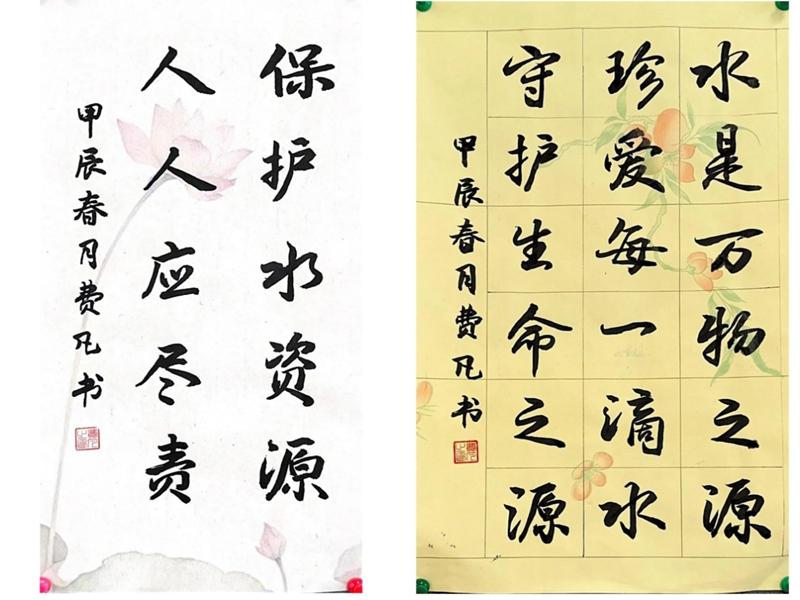 保护水资源
人人应尽责
甲辰春月费凡书
水是万物之源
珍爱每一滴水
守护生命之源
甲辰春月费凡书